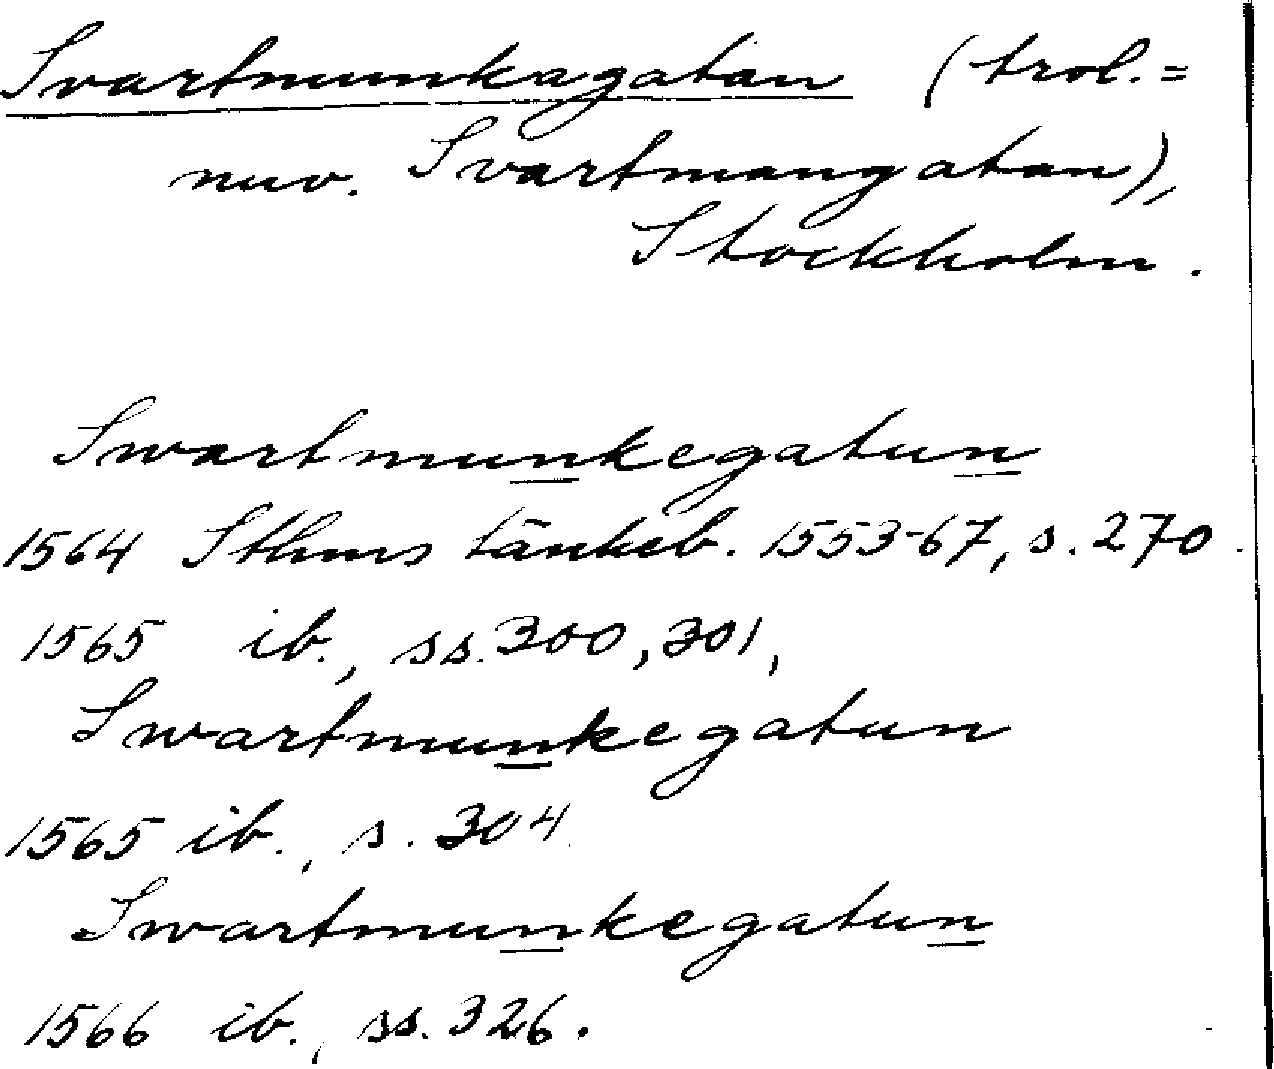 Svartmunkagatan (trol. =
nuv. Svartmangatan),
Stockholm.
Swartmunkegatun
1564 Sthms tänkeb. 1553-67, s. 270.
1565 ib., ss. 300, 301,
Swartmunkegatun
1565 ib., s. 304
Swartmunkegatun
1566 ib., ss. 326.